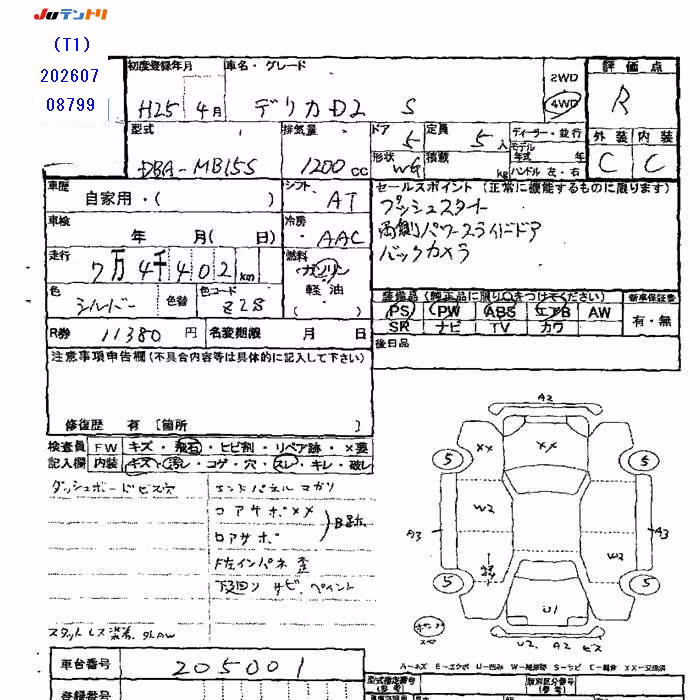 JUテントリ
(T1)
202607
08799
初度登録年月
車名・グレード
H25 4月
デリカD2 S
2WD
4WD
評価点
R
外装 内装
C C
型式
DBA-MB15S
排気量
1200 cc
ドア
5
定員
5人
ディーラー・並行
モデル
年式 年
形状
WG
積載
kg
ハンドル 左・右
車歴
自家用・( )
シフト
AT
セールスポイント (正常に機能するものに限ります)
プッシュスタート
両側パワースライドドア
バックカメラ
車検
年 月( 日)
冷房
AAC
走行
7万4千402km
燃料
ガソリン
軽油
( )
色
シルバー
色替
色コード
Z2S
装備品 (純正品に限り○をつけてください)
新車保証書
PS PW ABS エアB AW
SR ナビ TV カワ
有・無
R券
11380円
名変期限 月 日
後日品
注意事項申告欄(不具合内容等は具体的に記入して下さい)
修復歴 有 [箇所 ]
検査員
記入欄
FW キズ・飛石・ヒビ割・リペア跡・×要
内装 キズ・汚レ・コゲ・穴・スレ・キレ・破レ
ダッシュボードビス穴
エンドパネルマガリ
コアサポ××
ロアサポ
B跡
F左インパネ歪
下廻り サビ、ペイント
A2
XX XX
5 5
W2
A3 A3
W2
5 5
U1
U2 A2 ビス
A-キズ E-エクボ U-凹み W-補修跡 S-サビ X-要替 XX-交換済
車台番号
205001
登録番号
型式指定番号
(参考)
類別区分番号
(参考)